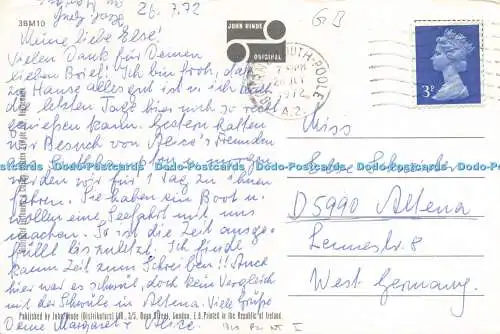 3BM10
26.7.72
Meine liebe Else!
Vielen Dank für Deinen
lieben Brief! Ich bin froh, daß
zu Hause alles gut ist u. ich
die letzten Tage hier noch so recht
genießen kann. Gestern hatten
wir Besuch von Alice's Freunden
werden wir für 1 Tag zu ihnen
fahren. Sie haben ein Boot u.
wollen eine Seefahrt mit uns
machen. So ist die Zeit ausge-
füllt bis zuletzt. Ich finde
kaum Zeit zum Schreiben!! Auch
hier war es schwül, doch kein Vergleich
mit der Schwüle in Altena. Viele Grüße
Deine Margaret
JOHN HINDE
ORIGINAL
BOURNEMOUTH-POOLE
JLY
1972
3P
Miss
D5990 Altena
Lennestr. 8
West Germany
Published by John Hinde (Distributors) Ltd., London, E.8. Printed in the Republic of Ireland
Dodo-Postcards-Com Dodo-Postcards-Com Dodo-Postcards-Com Dodo-Postcards-Com